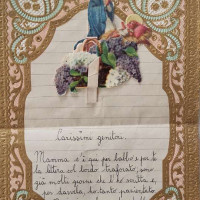 Carissimi genitori.
Mamma c'è qui per babbo e per te
la lettera col bordo traforato, sono
già molti giorni che l'ho scritta e,
per davola, ho tanto pazientato